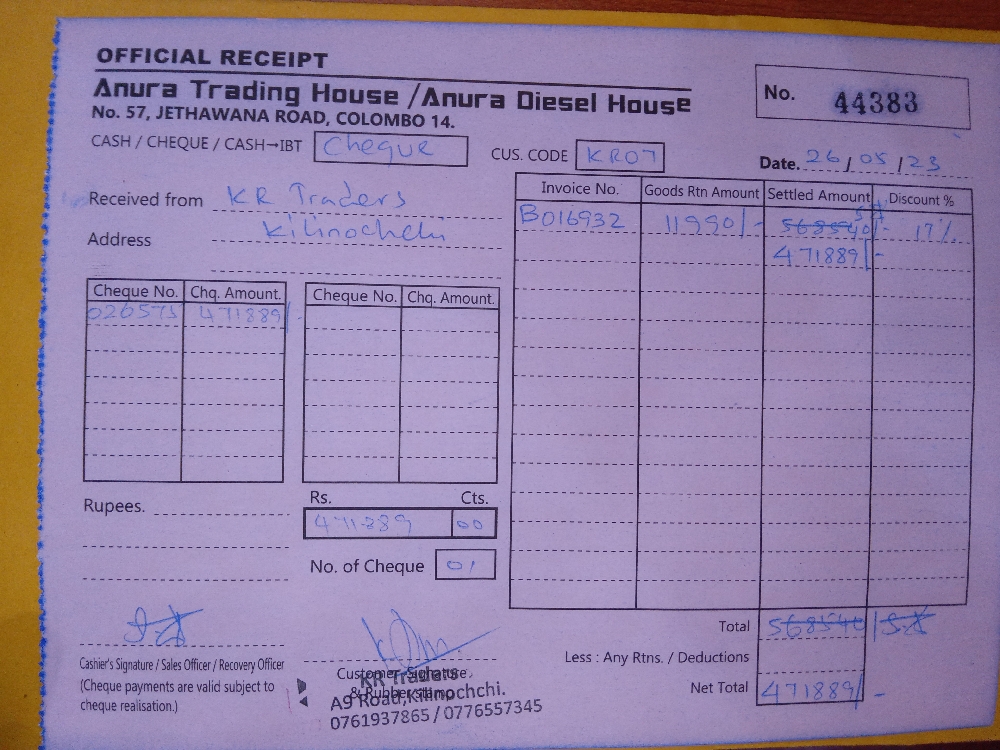 OFFICIAL RECEIPT
Anura Trading House /Anura Diesel House
No. 57, JETHAWANA ROAD, COLOMBO 14.
No. 44383
CASH / CHEQUE / CASH→IBT Cheque
CUS. CODE KR07
Date. 26 / 05 / 23
Received from KR Traders
Address Kilinochchi
Invoice No. Goods Rtn Amount Settled Amount Discount %
B016932 11990/- 568540/- 17%
471889/-
Cheque No. Chq. Amount. Cheque No. Chq. Amount.
026575 471889/-
Rupees.
Rs. Cts.
471889 00
No. of Cheque 01
Total 568540
Less : Any Rtns. / Deductions
Net Total 471889/-
Cashier's Signature / Sales Officer / Recovery Officer
(Cheque payments are valid subject to
cheque realisation.)
Customer Signature
& Rubber stamp
KR Traders
A9 Road,Kilinochchi.
0761937865 / 0776557345